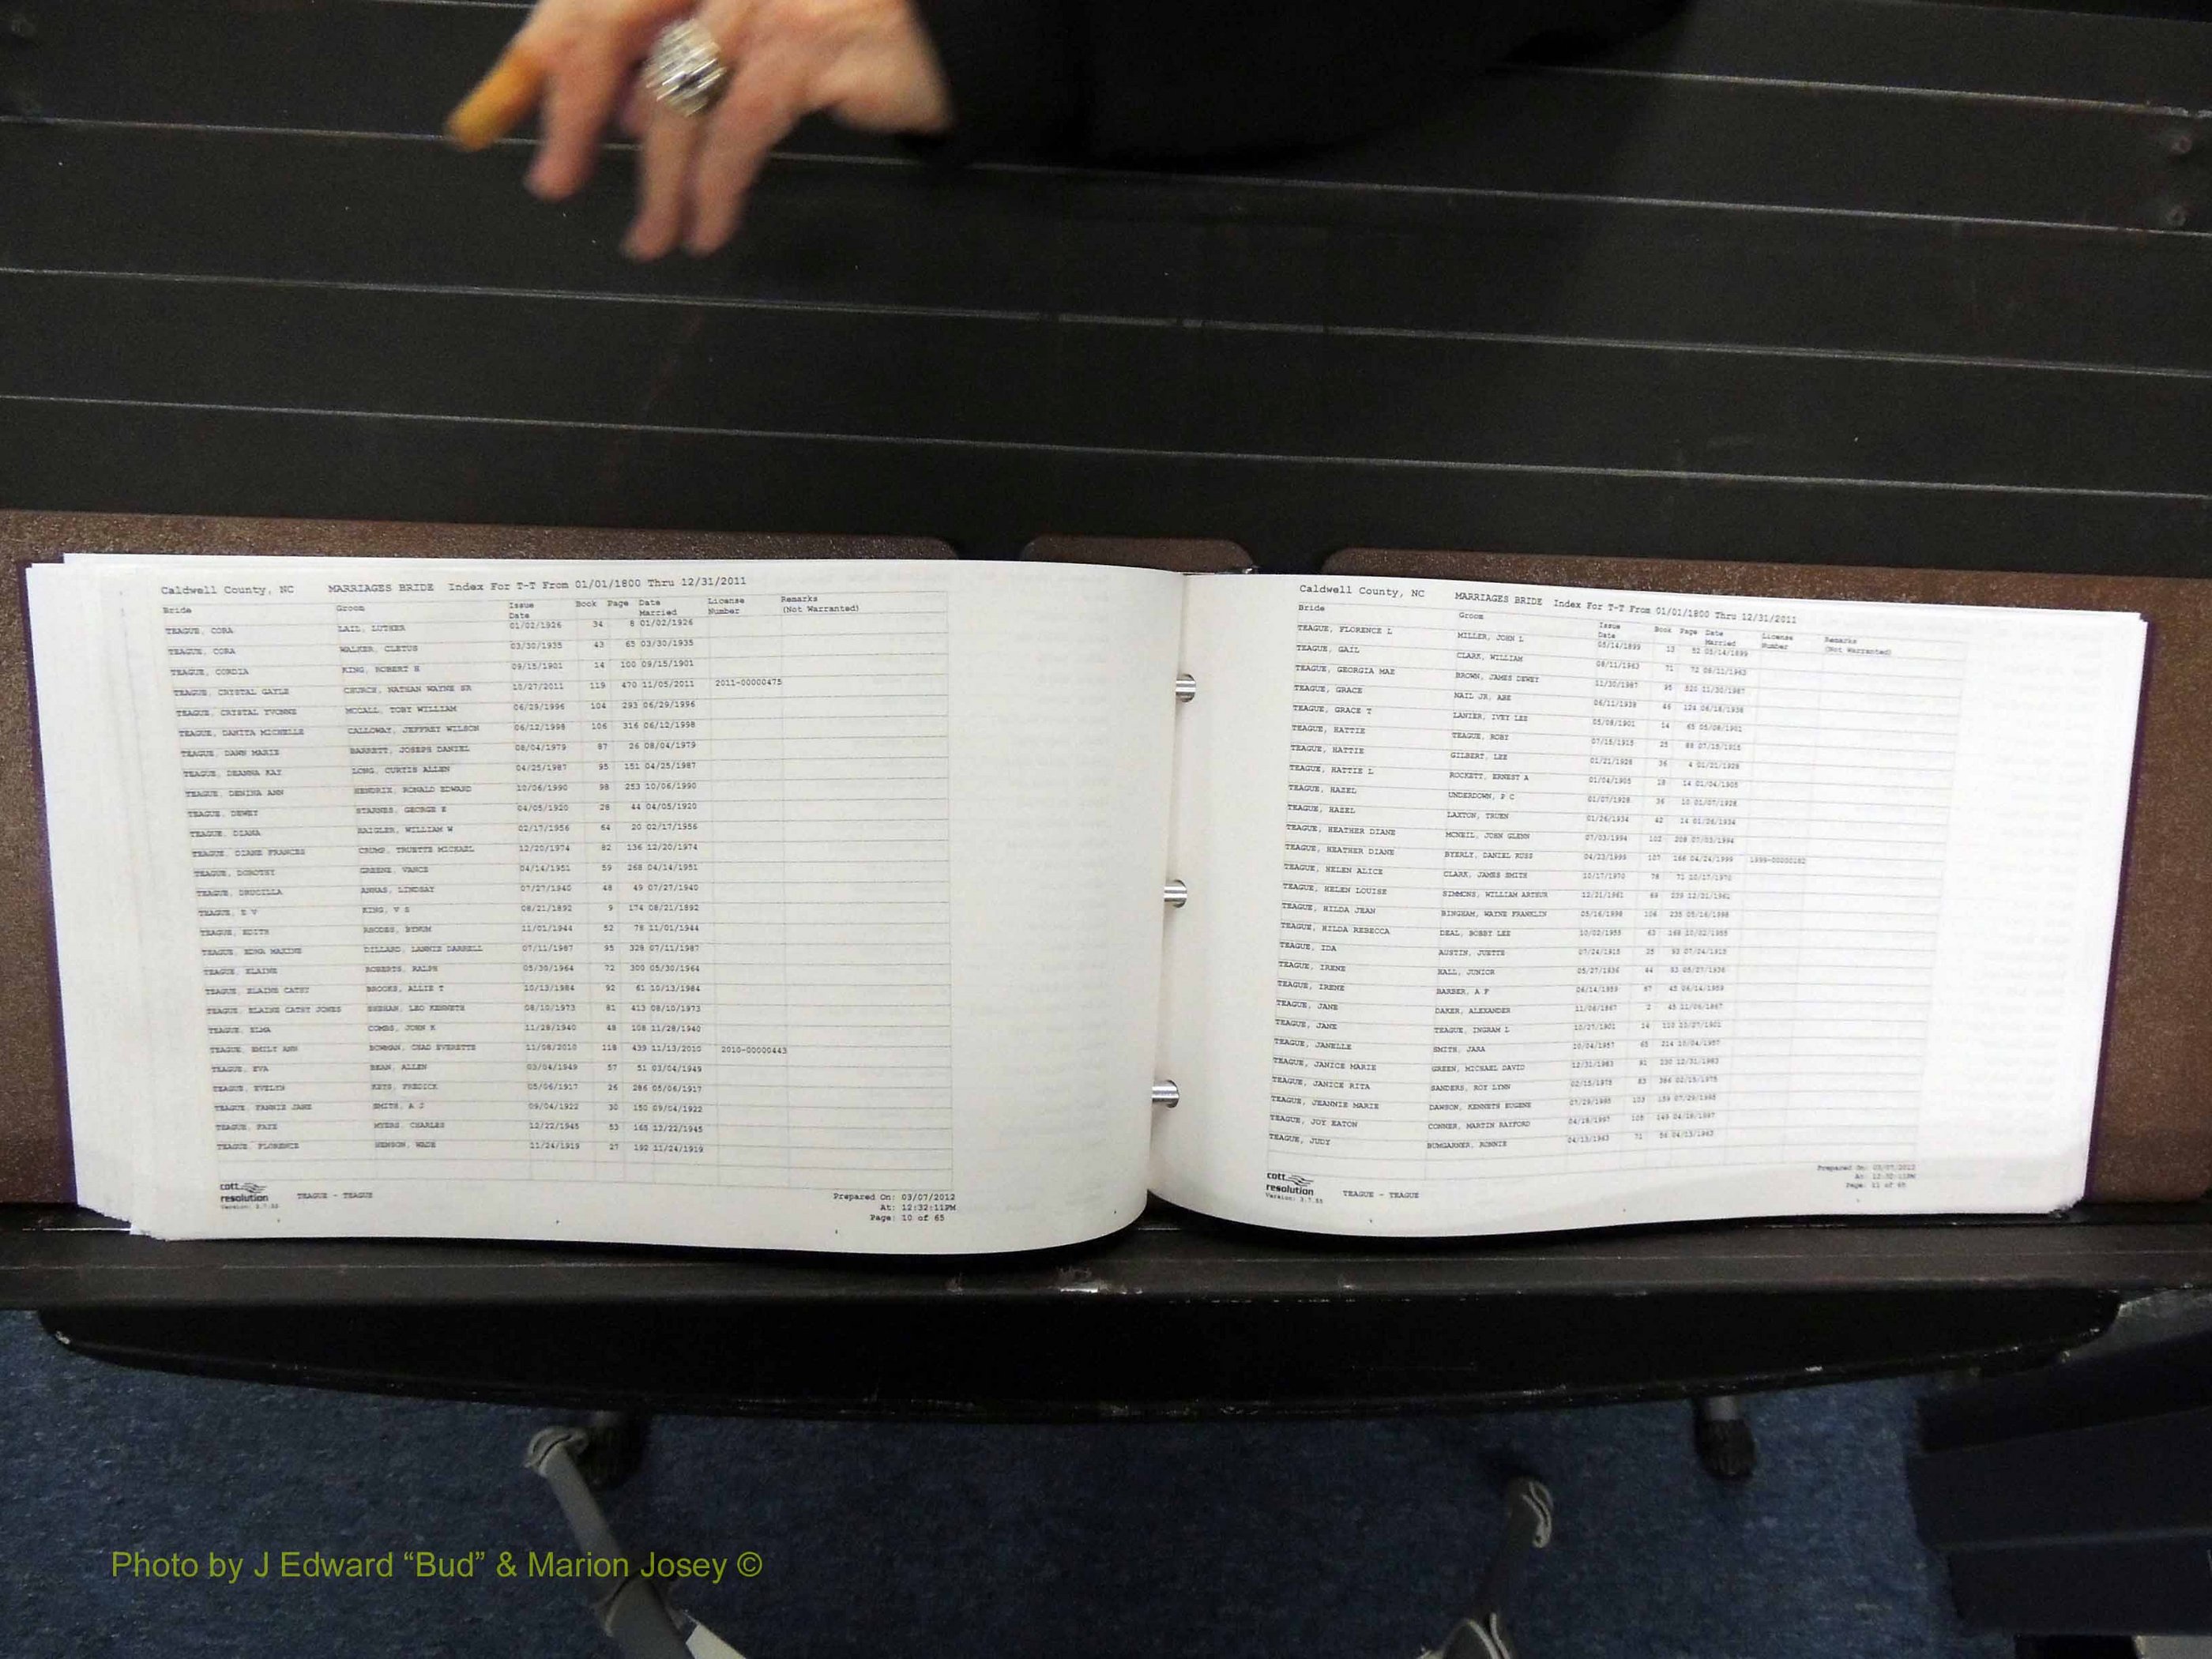 Caldwell County, NC MARRIAGES BRIDE Index For T-T From 01/01/1800 Thru 12/31/2011
Bride Groom Issue Date Book Page Date Married License Number Remarks (Not Warranted)
TEAGUE, CORA LAIL, LUTHER 01/02/1926 34 8 01/02/1926
TEAGUE, CORA WALKER, CLETUS 03/30/1935 43 65 03/30/1935
TEAGUE, CORDIA KING, ROBERT H 09/15/1901 14 100 09/15/1901
TEAGUE, CRYSTAL GAYLE CHURCH, NATHAN WAYNE SR 10/27/2011 119 470 11/05/2011 2011-00000475
TEAGUE, CRYSTAL YVONNE MCCALL, TOBY WILLIAM 06/29/1996 104 293 06/29/1996
TEAGUE, DAMITA MICHELLE CALLOWAY, JEFFREY WILSON 06/12/1998 106 316 06/12/1998
TEAGUE, DAWN MARIE BARRETT, JOSEPH DANIEL 08/04/1979 87 26 08/04/1979
TEAGUE, DEANNA KAY LONG, CURTIS ALLEN 04/25/1987 95 151 04/25/1987
TEAGUE, DENINA ANN HENDRIX, RONALD EDWARD 10/06/1990 98 253 10/06/1990
TEAGUE, DEWEY STARNES, GEORGE E 04/05/1920 28 44 04/05/1920
TEAGUE, DIANA RAIGLER, WILLIAM W 02/17/1956 64 20 02/17/1956
TEAGUE, DIANE FRANCES CRUMP, TRUETTE MICHAEL 12/20/1974 82 136 12/20/1974
TEAGUE, DOROTHY GREENE, VANCE 04/14/1951 59 268 04/14/1951
TEAGUE, DRUCILLA ANNAS, LINDSAY 07/27/1940 48 49 07/27/1940
TEAGUE, E V KING, V S 08/21/1892 9 174 08/21/1892
TEAGUE, EDITH RHODES, BYNUM 11/01/1944 52 78 11/01/1944
TEAGUE, EDNA MAXINE DILLARD, LANNIE DARRELL 07/11/1987 95 328 07/11/1987
TEAGUE, ELAINE ROBERTS, RALPH 05/30/1964 72 300 05/30/1964
TEAGUE, ELAINE CATHY BROOKS, ALLIE T 10/13/1984 92 61 10/13/1984
TEAGUE, ELAINE CATHY JONES SHEHAN, LEO KENNETH 08/10/1973 81 413 08/10/1973
TEAGUE, ELMA COMBS, JOHN R 11/28/1940 48 108 11/28/1940
TEAGUE, EMILY ANN BOWMAN, CHAD EVERETTE 11/08/2010 118 439 11/13/2010 2010-00000443
TEAGUE, EVA BEAN, ALLEN 03/04/1949 57 51 03/04/1949
TEAGUE, EVELYN KEYS, FREDICK 05/06/1917 26 286 05/06/1917
TEAGUE, FANNIE JANE SMITH, A J 09/04/1922 30 150 09/04/1922
TEAGUE, FAYE MYERS, CHARLES 12/22/1945 53 165 12/22/1945
TEAGUE, FLORENCE HENSON, WADE 11/24/1919 27 192 11/24/1919
cott resolution
TEAGUE - TEAGUE
Prepared On: 03/07/2012
At: 12:32:11PM
Page: 10 of 65
Caldwell County, NC MARRIAGES BRIDE Index For T-T From 01/01/1800 Thru 12/31/2011
Bride Groom Issue Date Book Page Date Married License Number Remarks (Not Warranted)
TEAGUE, FLORENCE L MILLER, JOHN L 05/14/1899 13 52 05/14/1899
TEAGUE, GAIL CLARK, WILLIAM 08/11/1963 71 72 08/11/1963
TEAGUE, GEORGIA MAE BROWN, JAMES DEWEY 11/30/1987 95 520 11/30/1987
TEAGUE, GRACE NAIL JR, ABE 06/11/1938 46 124 06/18/1938
TEAGUE, GRACE T LANIER, IVEY LEE 05/08/1901 14 65 05/08/1901
TEAGUE, HATTIE TEAGUE, ROBY 07/15/1915 25 88 07/15/1915
TEAGUE, HATTIE GILBERT, LEE 01/21/1928 36 4 01/21/1928
TEAGUE, HATTIE L ROCKETT, ERNEST A 01/04/1905 18 14 01/04/1905
TEAGUE, HAZEL UNDERDOWN, P C 01/07/1928 36 10 01/07/1928
TEAGUE, HAZEL LAXTON, TRUEN 01/26/1934 42 14 01/26/1934
TEAGUE, HEATHER DIANE MCNEIL, JOHN GLENN 07/03/1994 102 208 07/03/1994
TEAGUE, HEATHER DIANE BYERLY, DANIEL RUSS 04/23/1999 107 166 04/24/1999 1999-00000182
TEAGUE, HELEN ALICE CLARK, JAMES SMITH 10/17/1970 78 71 10/17/1970
TEAGUE, HELEN LOUISE SIMMONS, WILLIAM ARTHUR 12/21/1961 69 239 12/21/1961
TEAGUE, HILDA JEAN BINGHAM, WAYNE FRANKLIN 05/16/1998 106 235 05/16/1998
TEAGUE, HILDA REBECCA DEAL, BOBBY LEE 10/02/1955 63 168 10/02/1955
TEAGUE, IDA AUSTIN, JUETTE 07/24/1915 25 93 07/24/1915
TEAGUE, IRENE HALL, JUNIOR 05/27/1936 44 93 05/27/1936
TEAGUE, IRENE BARBER, A P 06/14/1959 67 43 06/14/1959
TEAGUE, JANE DAKER, ALEXANDER 11/06/1867 2 45 11/06/1867
TEAGUE, JANE TEAGUE, INGRAM L 10/27/1901 14 110 10/27/1901
TEAGUE, JANELLE SMITH, JARA 10/04/1957 65 214 10/04/1957
TEAGUE, JANICE MARIE GREEN, MICHAEL DAVID 12/31/1983 91 230 12/31/1983
TEAGUE, JANICE RITA SANDERS, ROY LYNN 02/15/1975 83 386 02/15/1975
TEAGUE, JEANNIE MARIE DAWSON, KENNETH EUGENE 07/29/1995 103 159 07/29/1995
TEAGUE, JOY EATON CONNER, MARTIN RAYFORD 04/18/1997 105 149 04/18/1997
TEAGUE, JUDY BUMGARNER, RONNIE 04/13/1963 71 06 04/13/1963
cott resolution
TEAGUE - TEAGUE
Prepared On: 03/07/2012
At: 12:32:11PM
Page: 11 of 65
Photo by J Edward “Bud” & Marion Josey ©